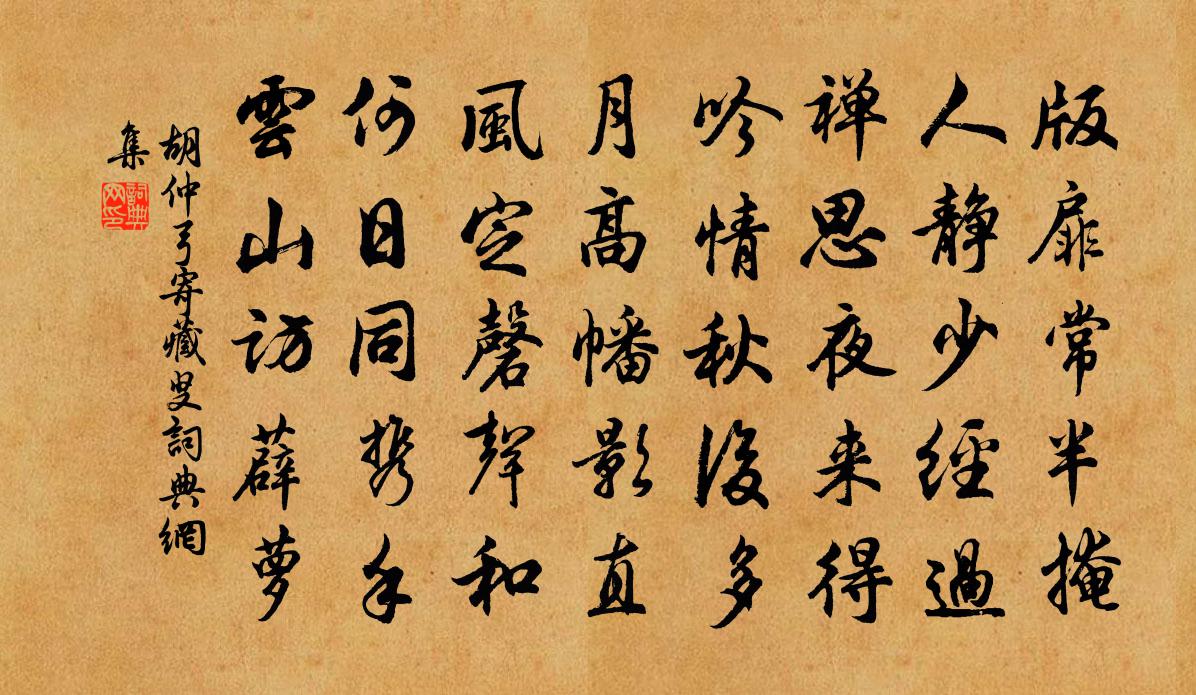 版扉常半掩
人靜少經過
禅思夜来得
吟情秋後多
月高幡影直
風定磬聲和
何日同携手
雲山訪薜萝
胡仲弓寄藏叟詞典網
集
詞典网印